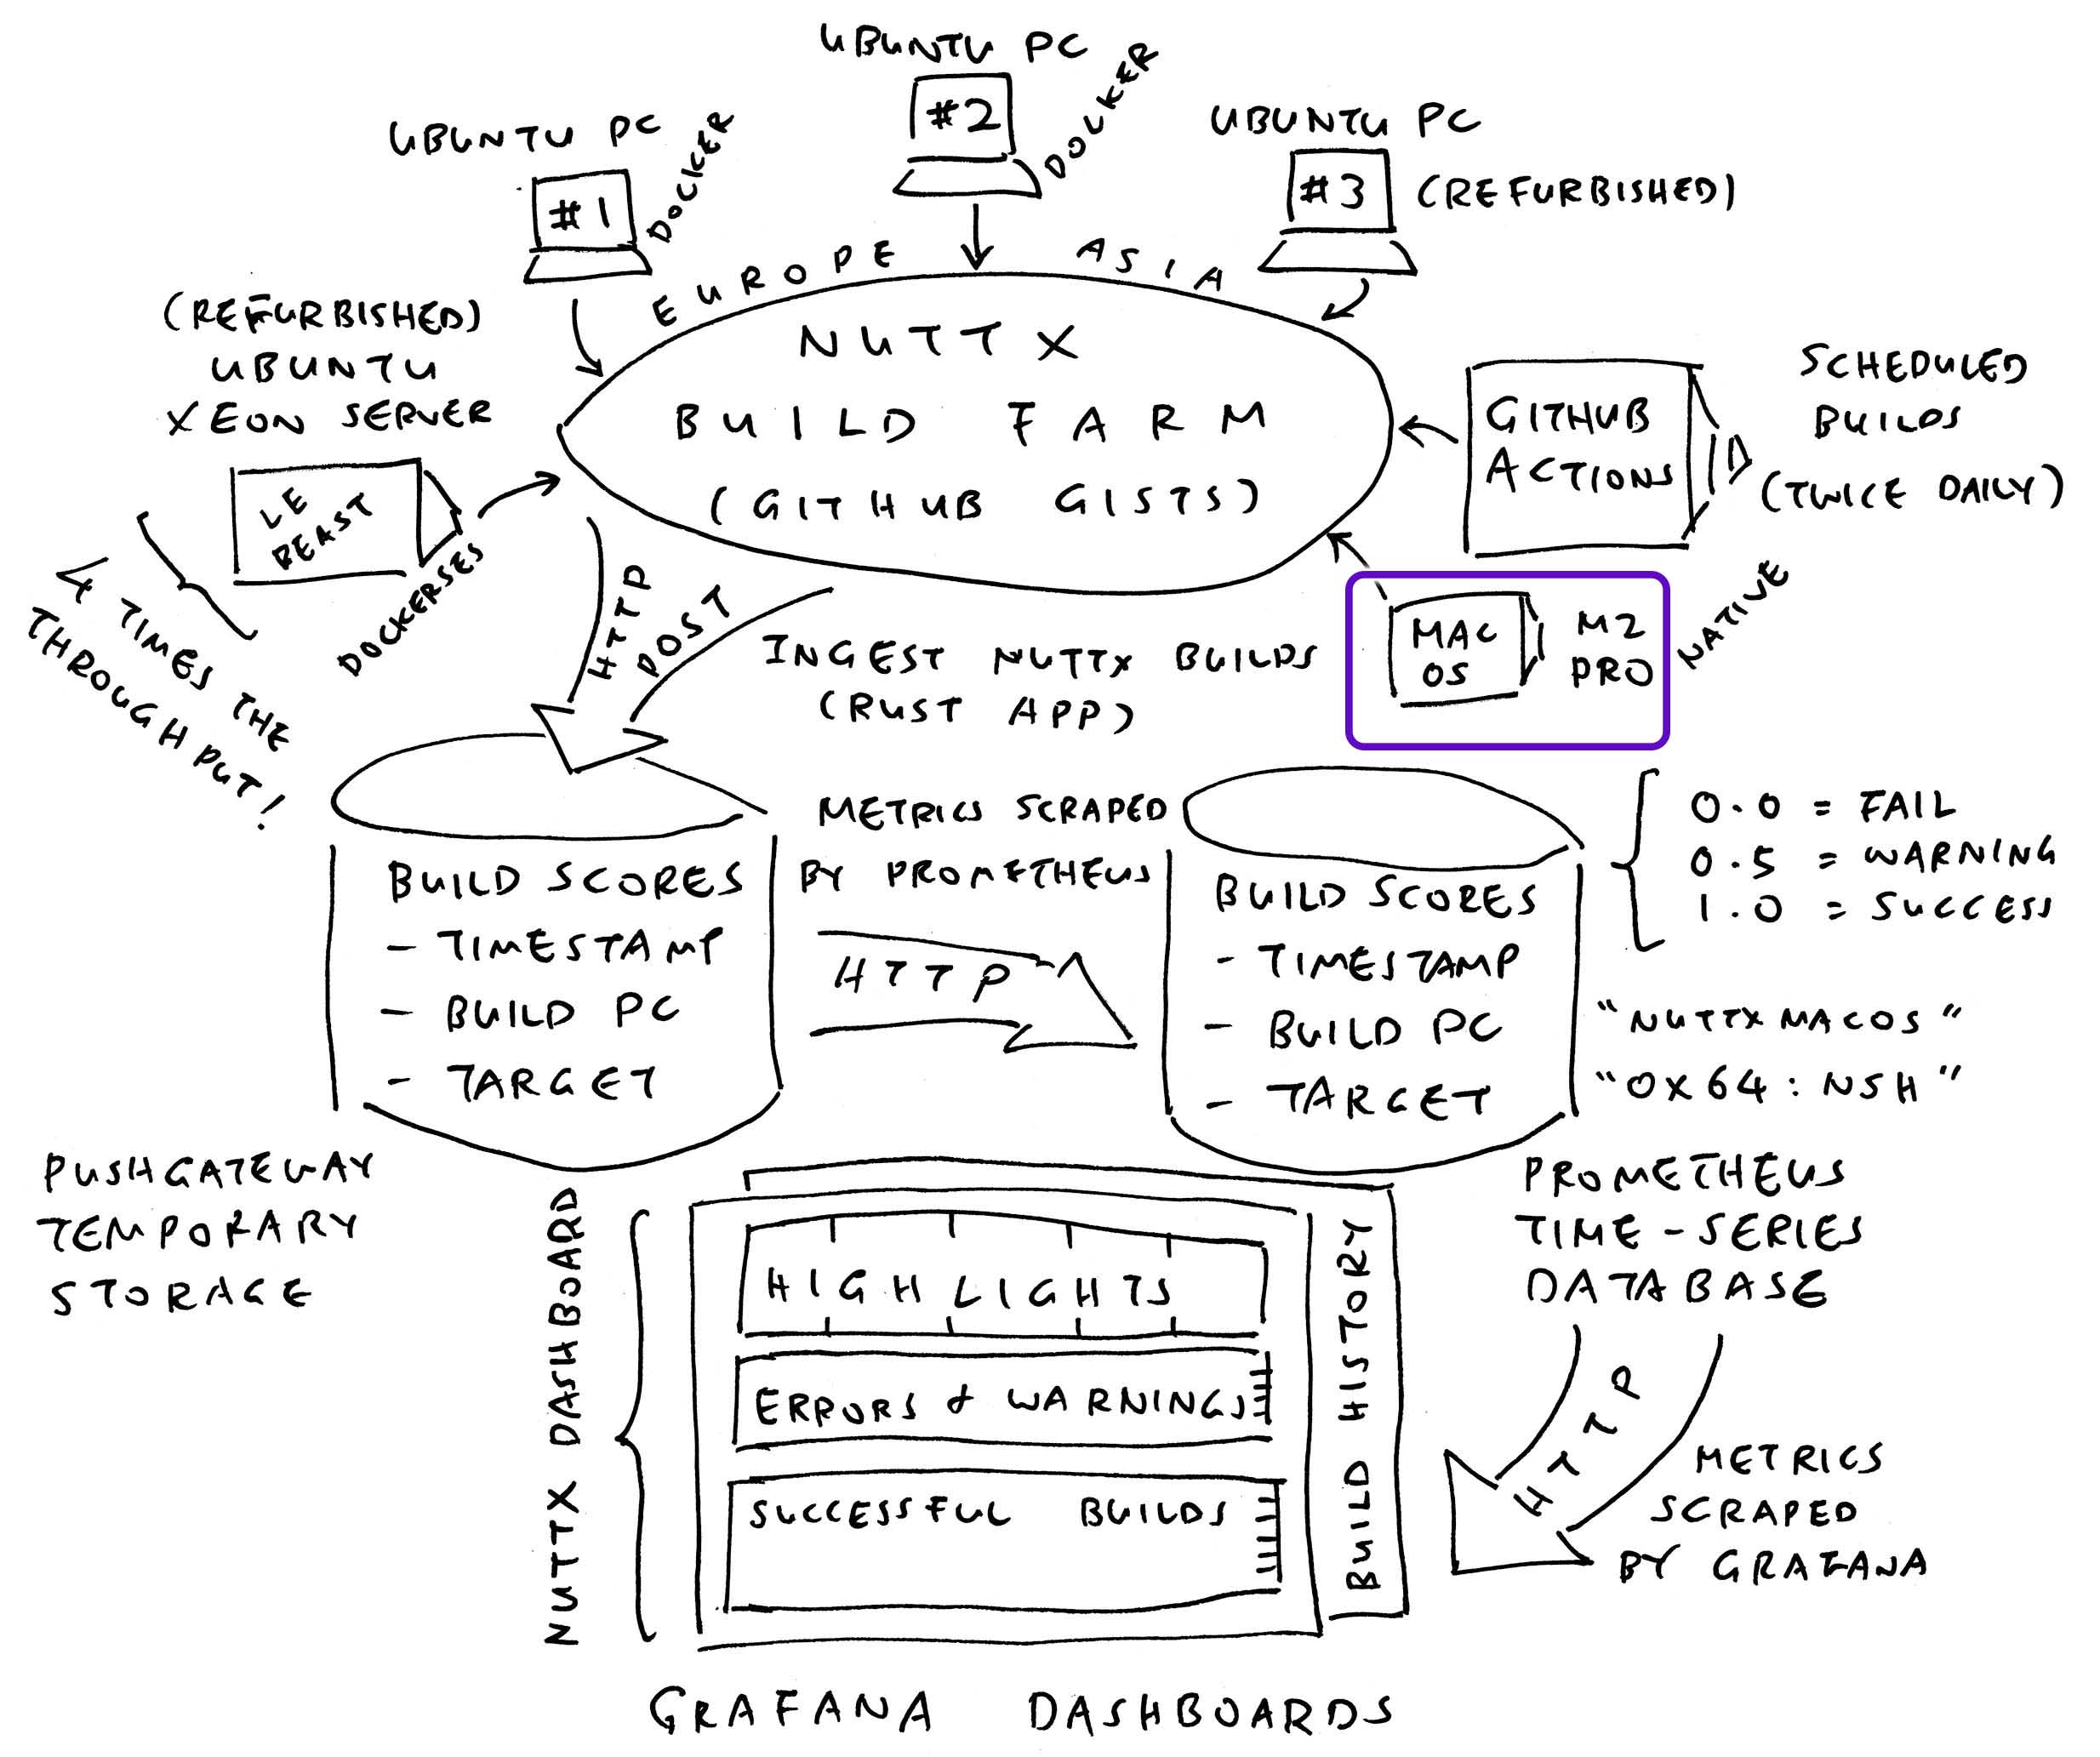 UBUNTU PC
#2
DOCKER
UBUNTU PC
#1
DOCKER
UBUNTU PC
#3
(REFURBISHED)
EUROPE
ASIA
(REFURBISHED)
UBUNTU
XEON SERVER
LE
BEAST
DOCKERSES
4 TIMES THE
THROUGHPUT!
NUTTX
BUILD FARM
(GITHUB GISTS)
GITHUB
ACTIONS
SCHEDULED
BUILDS
(TWICE DAILY)
MAC
OS
M2
PRO
NATIVE
HTTP
POST
INGEST NUTTX BUILDS
(RUST APP)
BUILD SCORES
- TIMESTAMP
- BUILD PC
- TARGET
PUSHGATEWAY
TEMPORARY
STORAGE
METRICS SCRAPED
BY PROMETHEUS
HTTP
BUILD SCORES
- TIMESTAMP
- BUILD PC
- TARGET
0.0 = FAIL
0.5 = WARNING
1.0 = SUCCESS
"NUTTXMACOS"
"OX64:NSH"
PROMETHEUS
TIME-SERIES
DATABASE
HTTP
METRICS
SCRAPED
BY GRAFANA
NUTTX DASHBOARD
HIGHLIGHTS
ERRORS & WARNINGS
SUCCESSFUL BUILDS
BUILD HISTORY
GRAFANA DASHBOARDS